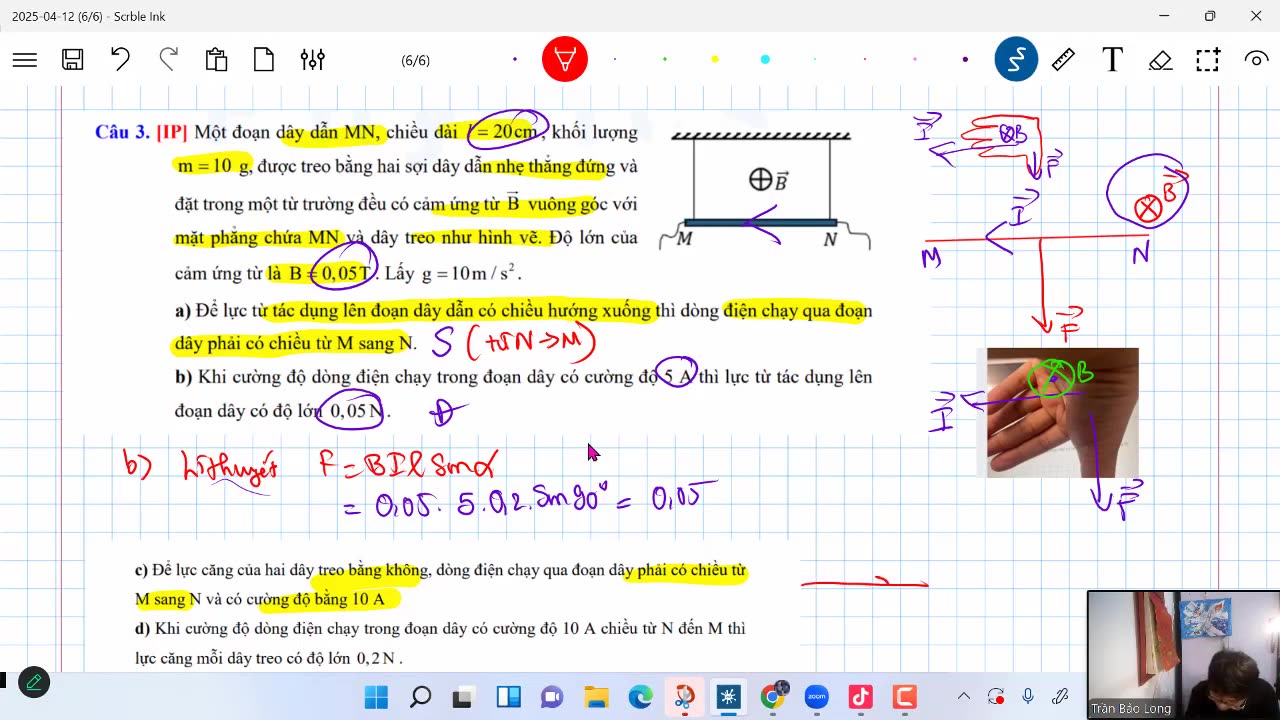 2025-04-12 (6/6) - Scrble Ink
(6/6)
T
Câu 3. [IP] Một đoạn dây dẫn MN, chiều dài l = 20 cm, khối lượng
m = 10 g, được treo bằng hai sợi dây dẫn nhẹ thẳng đứng và
đặt trong một từ trường đều có cảm ứng từ B⃗ vuông góc với
mặt phẳng chứa MN và dây treo như hình vẽ. Độ lớn của
cảm ứng từ là B = 0,05T. Lấy g = 10 m / s².
B⃗
M N
a) Để lực từ tác dụng lên đoạn dây dẫn có chiều hướng xuống thì dòng điện chạy qua đoạn
dây phải có chiều từ M sang N. S (từ N → M)
b) Khi cường độ dòng điện chạy trong đoạn dây có cường độ 5 A thì lực từ tác dụng lên
đoạn dây có độ lớn 0,05 N. Đ
b) Lí thuyết F = BIl Sinα
= 0,05. 5. 0,2. Sin90° = 0,05
c) Để lực căng của hai dây treo bằng không, dòng điện chạy qua đoạn dây phải có chiều từ
M sang N và có cường độ bằng 10 A
d) Khi cường độ dòng điện chạy trong đoạn dây có cường độ 10 A chiều từ N đến M thì
lực căng mỗi dây treo có độ lớn 0,2 N.
I⃗ B
F⃗
I⃗ B⃗
M N
F⃗
B
I⃗
F⃗
zoom
Trần Bảo Long